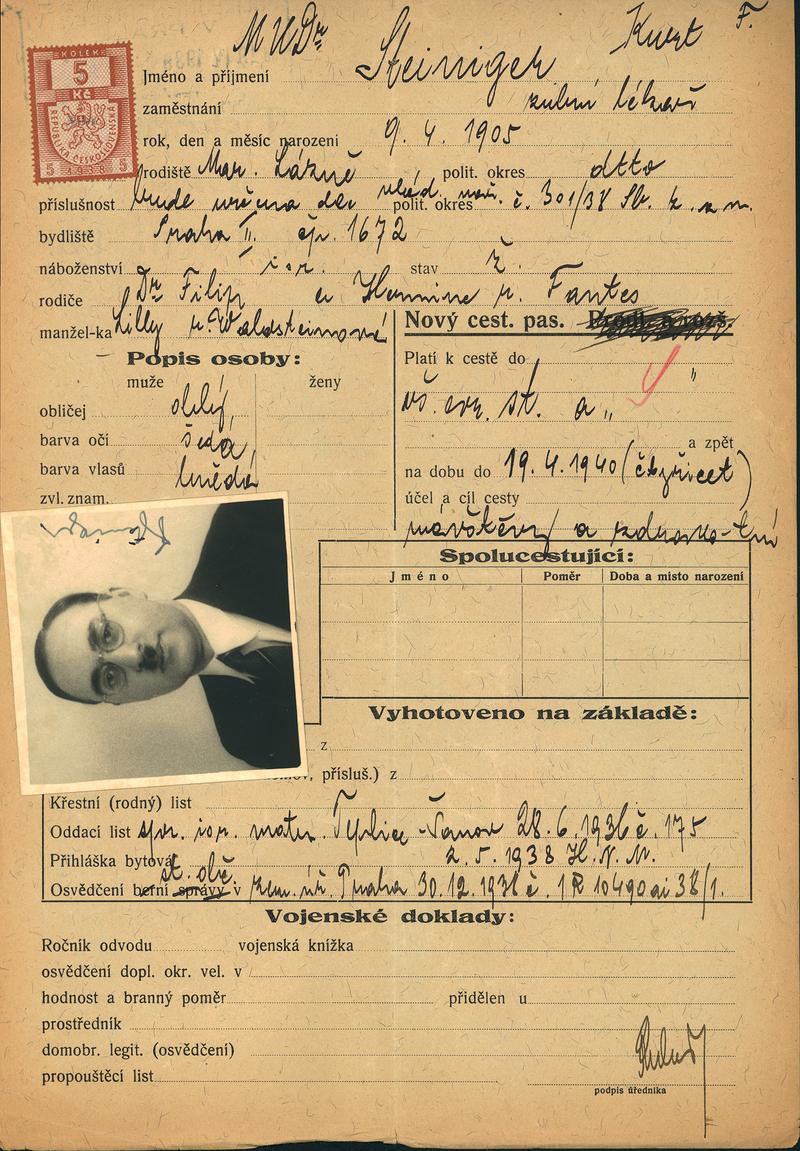 MUDr Steiniger Kurt F.
KOLEK
5
Kč
REPUBLIKA ČESKOSLOVENSKÁ
5 1938 5
Jméno a příjmení
zaměstnání zubní lékař
rok, den a měsíc narození 9. 4. 1905
rodiště Mar. Lázně polit. okres dtto
příslušnost bude určena dle vlád. nař. polit. okres č. 301/38 Sb. z. a n.
bydliště Praha II. čp. 1672
náboženství isr. stav ž.
rodiče Dr Filip a Hermine r. Fantes
manžel-ka Lilly r. Waldsteinová
Nový cest. pas. Prodl. a rozš.
Popis osoby:
muže ženy
obličej
barva očí šedá
barva vlasů hnědá
zvl. znam.
Platí k cestě do
vš. evr. st. a „ "
a zpět
na dobu do 19. 4. 1940 (čtyřicet)
účel a cíl cesty
návštěvy a
Spolucestující:
Jméno Poměr Doba a místo narození
Vyhotoveno na základě:
z
přísluš.) z
Křestní (rodný) list
Oddací list isr. matr. Teplice-Šanov 28. 6. 1936 č. 175
Přihláška bytová 2. 5. 1938 H. N. M.
Osvědčení berní správy v st. obč. zem. úř. Praha 30. 12. 1938 č. 1R 10490 ai 38/1.
Vojenské doklady:
Ročník odvodu vojenská knížka
osvědčení dopl. okr. vel. v
hodnost a branný poměr přidělen u
prostředník
domobr. legit. (osvědčení)
propouštěcí list
podpis úředníka